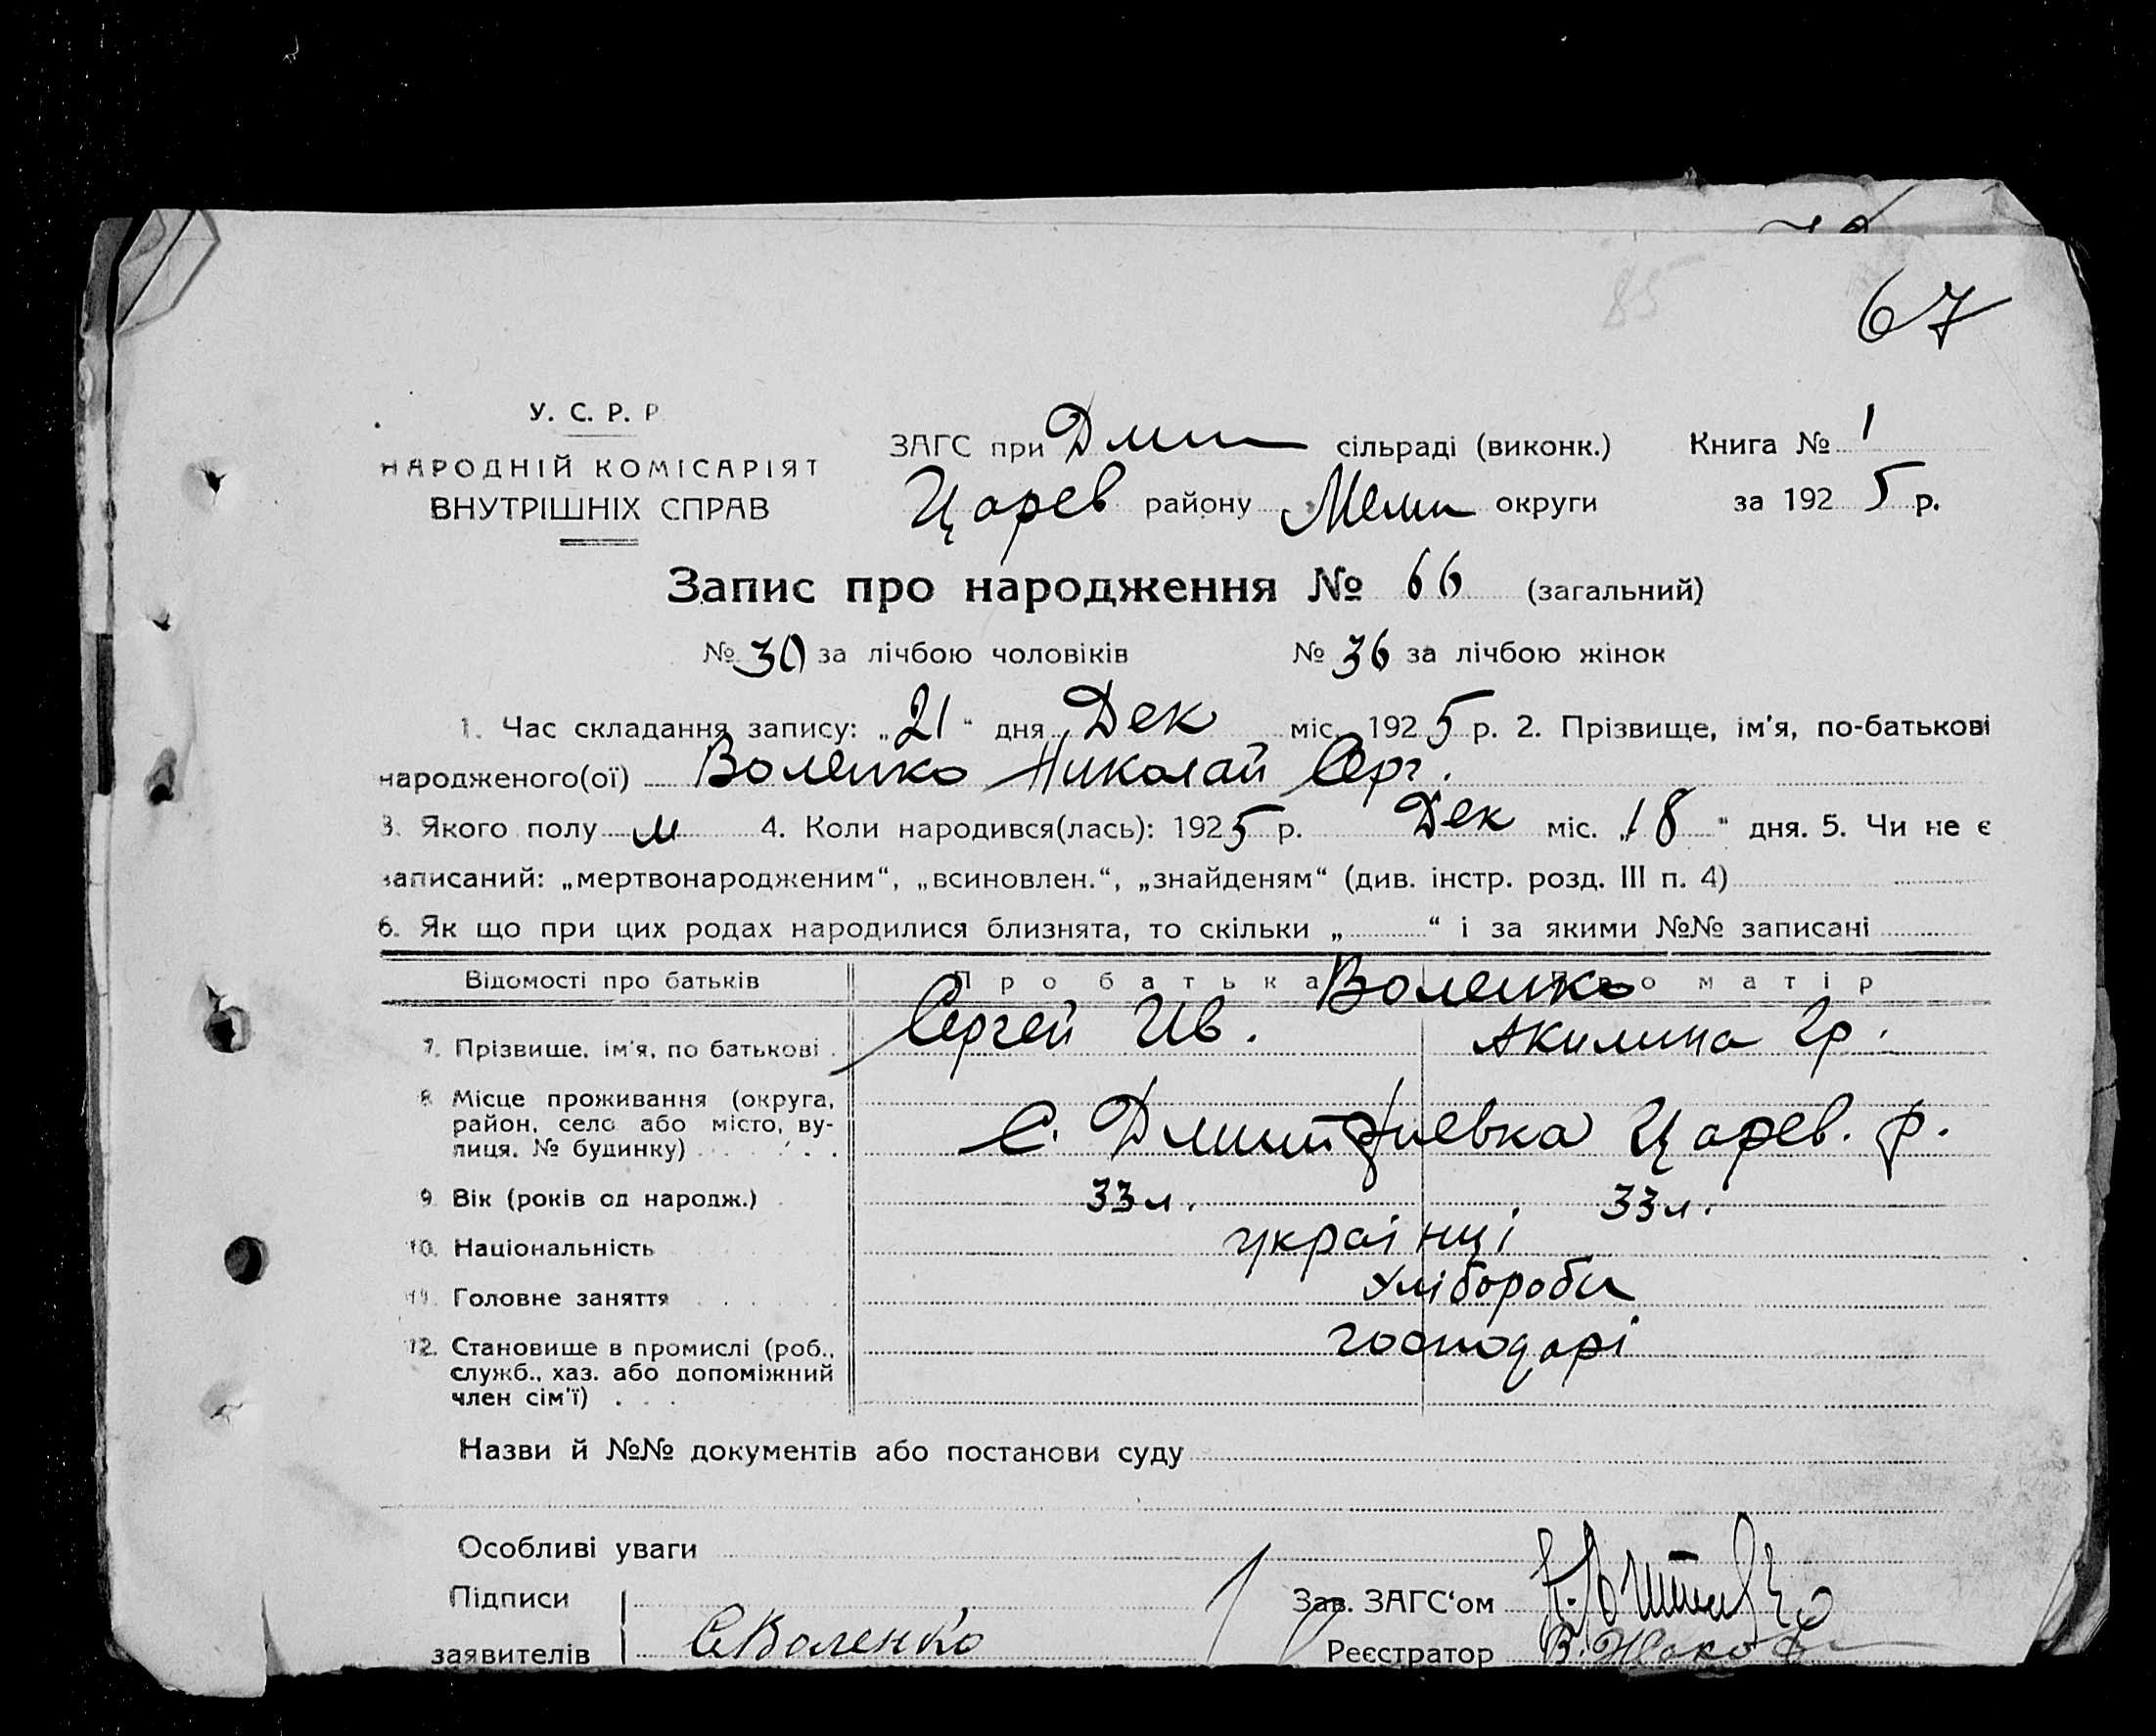 85
67
У. С. Р. Р
НАРОДНІЙ КОМІСАРІЯТ
ВНУТРІШНІХ СПРАВ
ЗАГС при Дми сільраді (виконк.) Книга № 1
Царев району Мели округи за 1925 р.
Запис про народження № 66 (загальний)
№ 30 за лічбою чоловіків № 36 за лічбою жінок
1. Час складання запису: „21“ дня Дек міс. 1925 р. 2. Прізвище, ім'я, по-батькові
народженого(ої) Воленко Николай Серг.
3. Якого полу м 4. Коли народився(лась): 1925 р. Дек міс. „18“ дня. 5. Чи не є
записаний: „мертвонародженим“, „всиновлен.“, „знайденям“ (див. інстр. розд. III п. 4)
6. Як що при цих родах народилися близнята, то скільки „ “ і за якими №№ записані
Відомості про батьків Про батька Про матір
Воленко
7. Прізвище, ім'я, по батькові Сергей Ив. Акилина Гр.
8. Місце проживання (округа,
район, село або місто, ву-
лиця. № будинку) С. Дмитриевка Царев. р.
9. Вік (років од народж.) 33 л. 33 л.
10. Національність украінці
11. Головне заняття хлібороби
12. Становище в промислі (роб., господарі
служб., хаз. або допоміжний
член сім'ї)
Назви й №№ документів або постанови суду
Особливі уваги
Підписи Зав. ЗАГС'ом
заявителів СВоленко Реєстратор